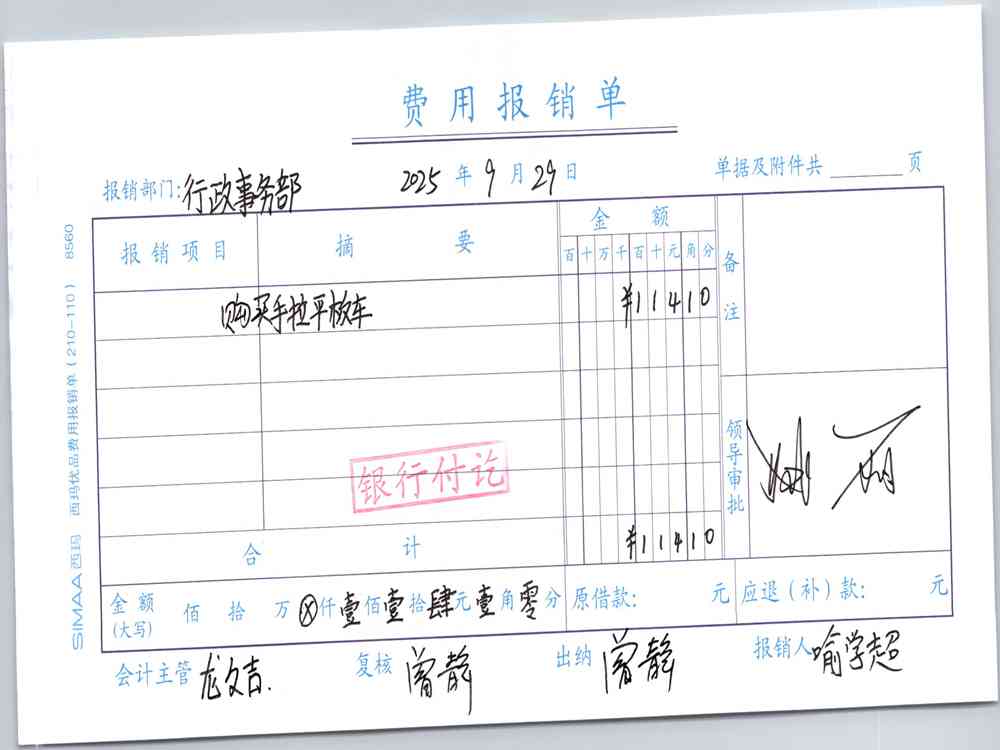 费用报销单
报销部门:行政事务部 2025年9月29日 单据及附件共 页
报销项目 摘要 金额 备注
百十万千百十元角分
购买手拉平板车 ¥11410
领导审批
银行付讫
合计 ¥11410
金额(大写) 佰拾万ⓧ仟壹佰壹拾肆元壹角零分 原借款: 元 应退(补)款: 元
会计主管 龙文吉. 复核 曾静 出纳 曾静 报销人 喻学超
SIMAA西玛 西玛优品费用报销单(210-110) 8560